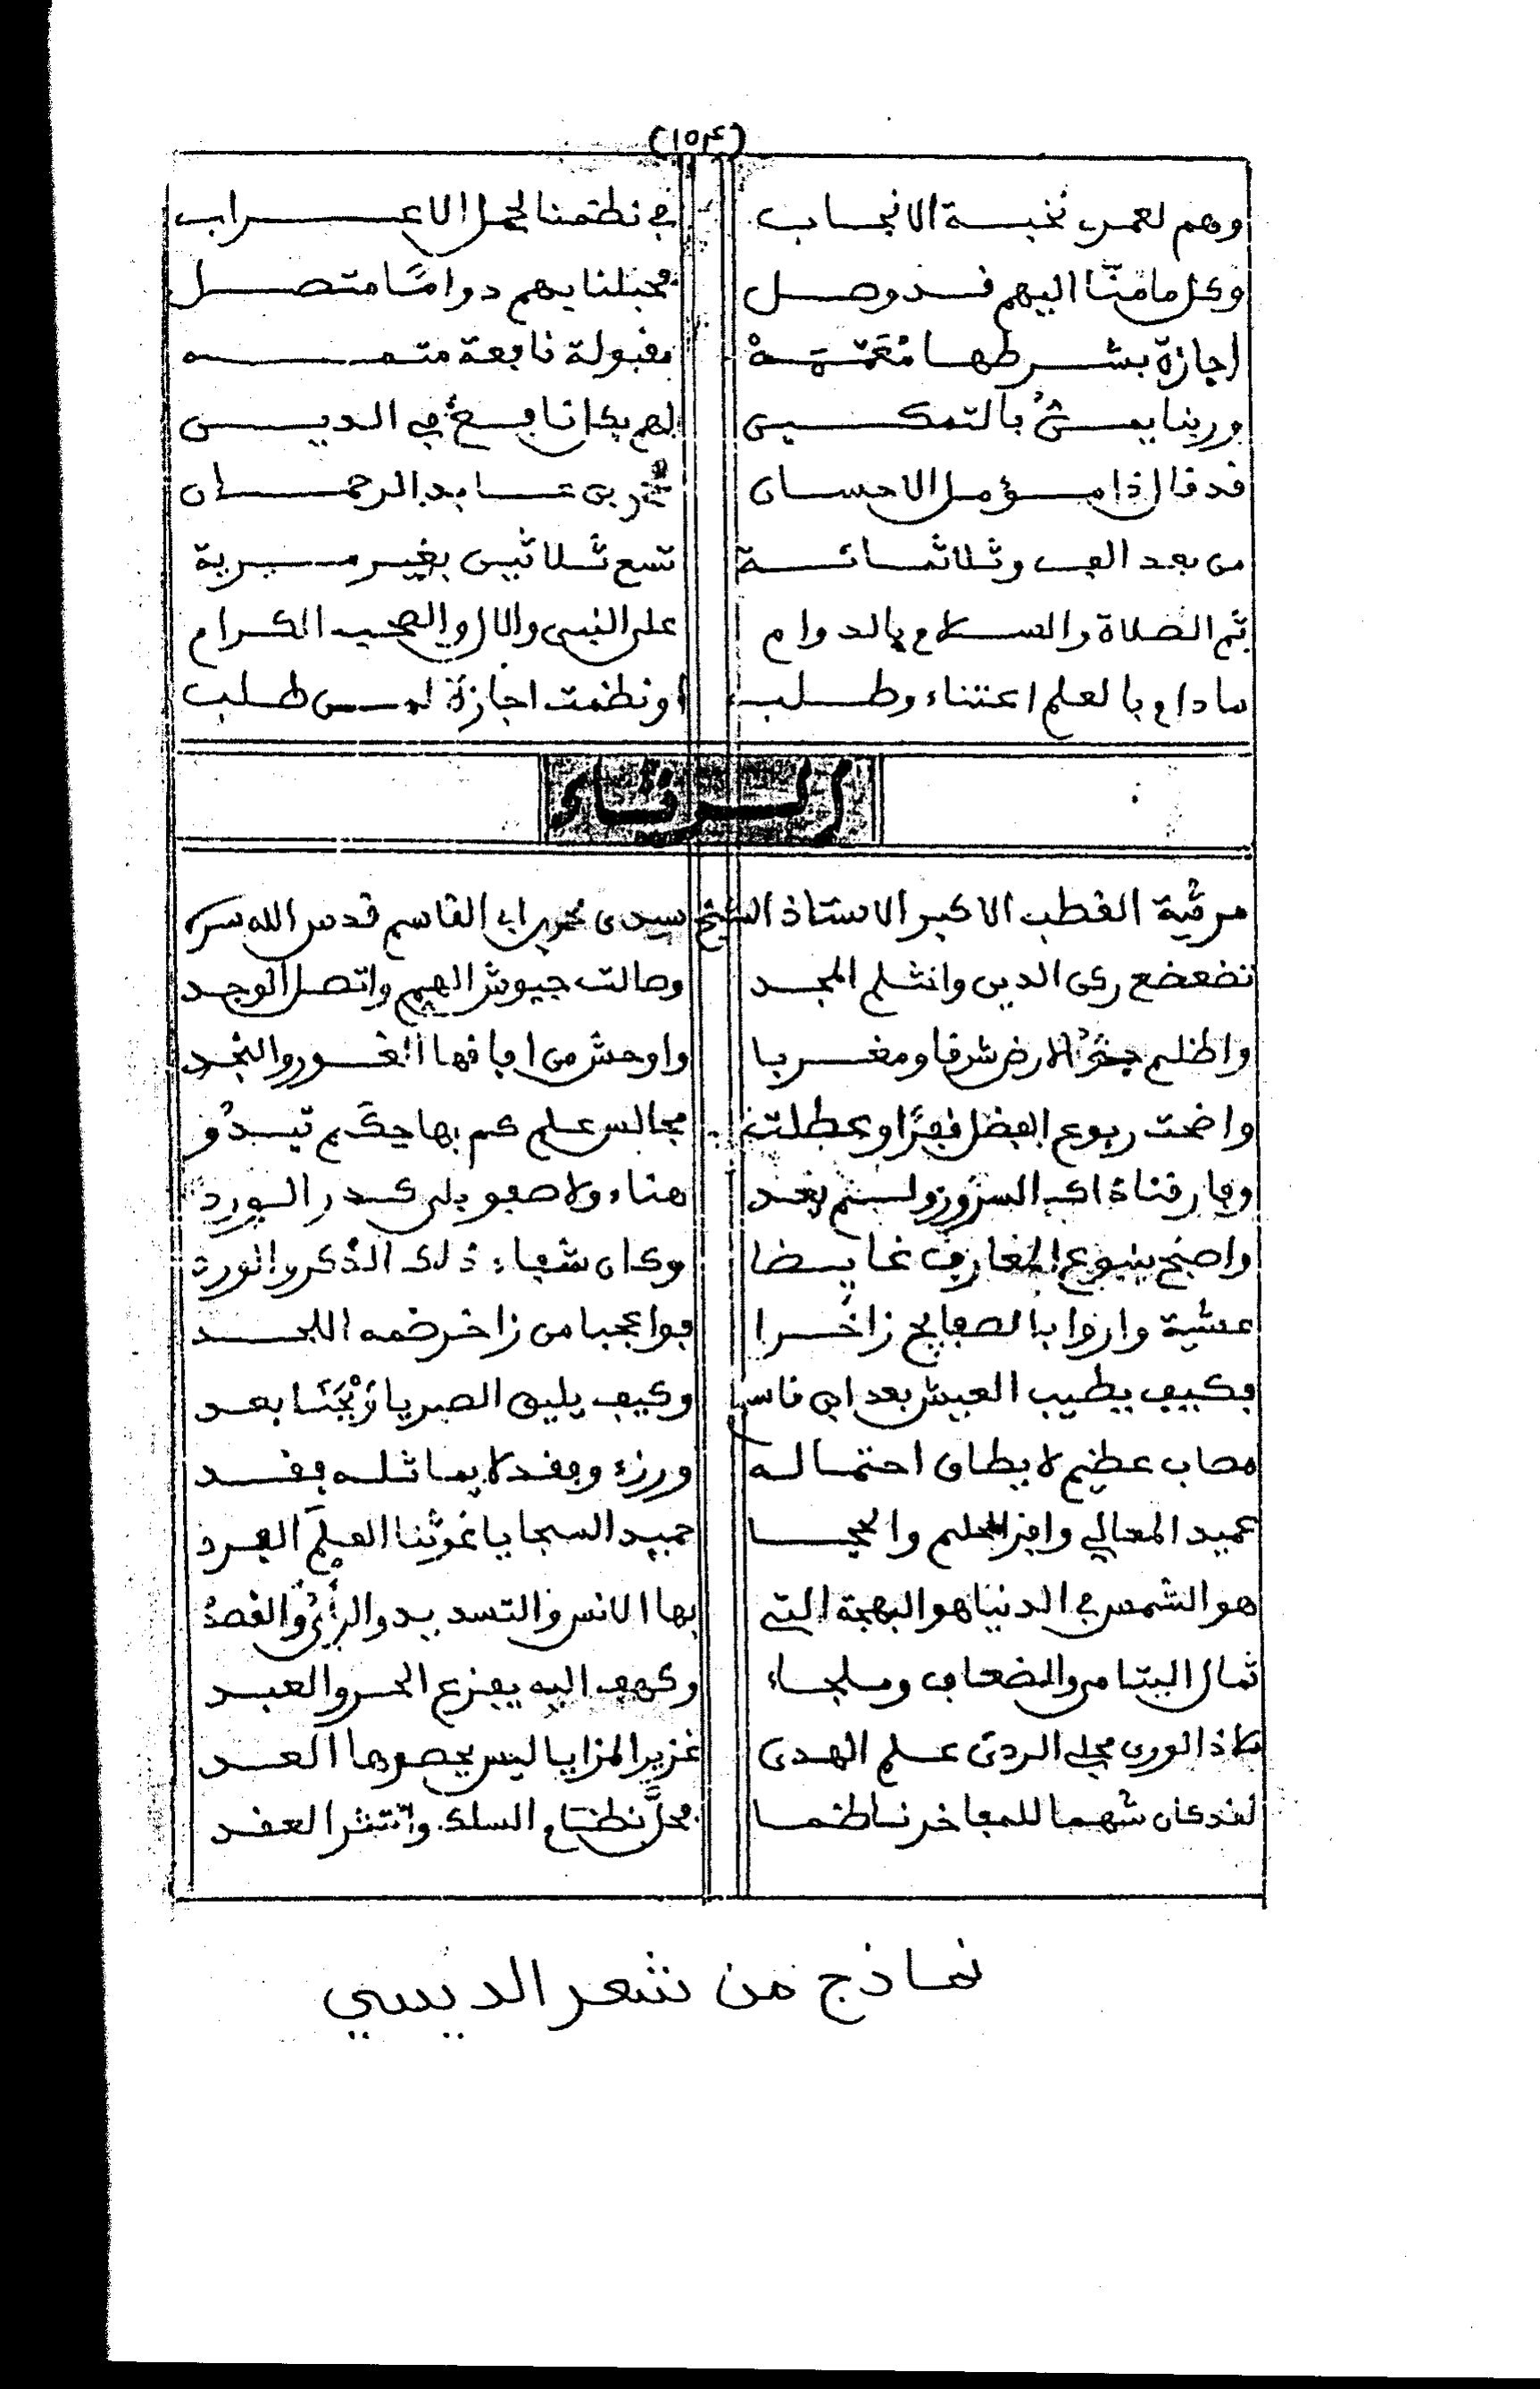 (١٥٤)
وهم لعمري نخبة الانجاب في نظمنا لجمل الاعراب
وكل ما منّا اليهم قد وصل فحبلنا بهم دوامًا متصل
اجازة بشرطها مُعَمّمَهْ مقبولة نافعة متممه
وربنا يمنُّ بالتمكين لهم بكل نافع في الدين
قد قال ذا مؤمل الاحسان محمد بن عابد الرحمان
من بعد الف وثلاثمائة تسع ثلاثين بغير مرية
ثم الصلاة والسلام بالدوام على النبي والال والصحب الكرام
ما دام بالعلم اعتناء وطلب او نظمت اجازة لمن طلب
الرثاء
مرثية القطب الاكبر الاستاذ الشيخ سيدي محمد بن ابي القاسم قدس الله سره
تضعضع ركن الدين وانثلم المجد وصالت جيوش الهم واتصل الوجد
واظلم جوُّ الارض شرقا ومغربا واوحش من افاقها الغور والنجد
واضحت ربوع الفضل قفرًا وعطلت مجالس علم كم بها حِكَم تبدُو
وفارقنا ذاك السرور ولم يعد هناء ولا صفو بلى كدر الورد
واصبح ينبوع المعارف غايضا وكان شفاء ذلك الذكر والورد
عشية واروا بالصفايح زاخرا فواعجبا من زاخر ضمه اللحد
فكيف يطيب العيش بعد ابي قاسم وكيف يليق الصبر يا نُجَبَا بعد
مصاب عظيم لا يطاق احتماله ورزء وفقد لا يماثله فقد
عميد المعالي وافر الحلم والحجا حميد السجايا غوثنا العلَم الفرد
هو الشمس في الدنيا هو البهجة التي بها الانس والتسديد والرأيُ والقصدُ
ثمال اليتامى والضعاف وملجاء وكهف اليه يفزع الحر والعبد
ملاذ الورى مجلي الردى علم الهدى غزير المزايا ليس يحصرها العد
لقد كان شهما للمفاخر ناظما فحلَّ نظام السلك وانتثر العقد
نماذج من شعر الديسي